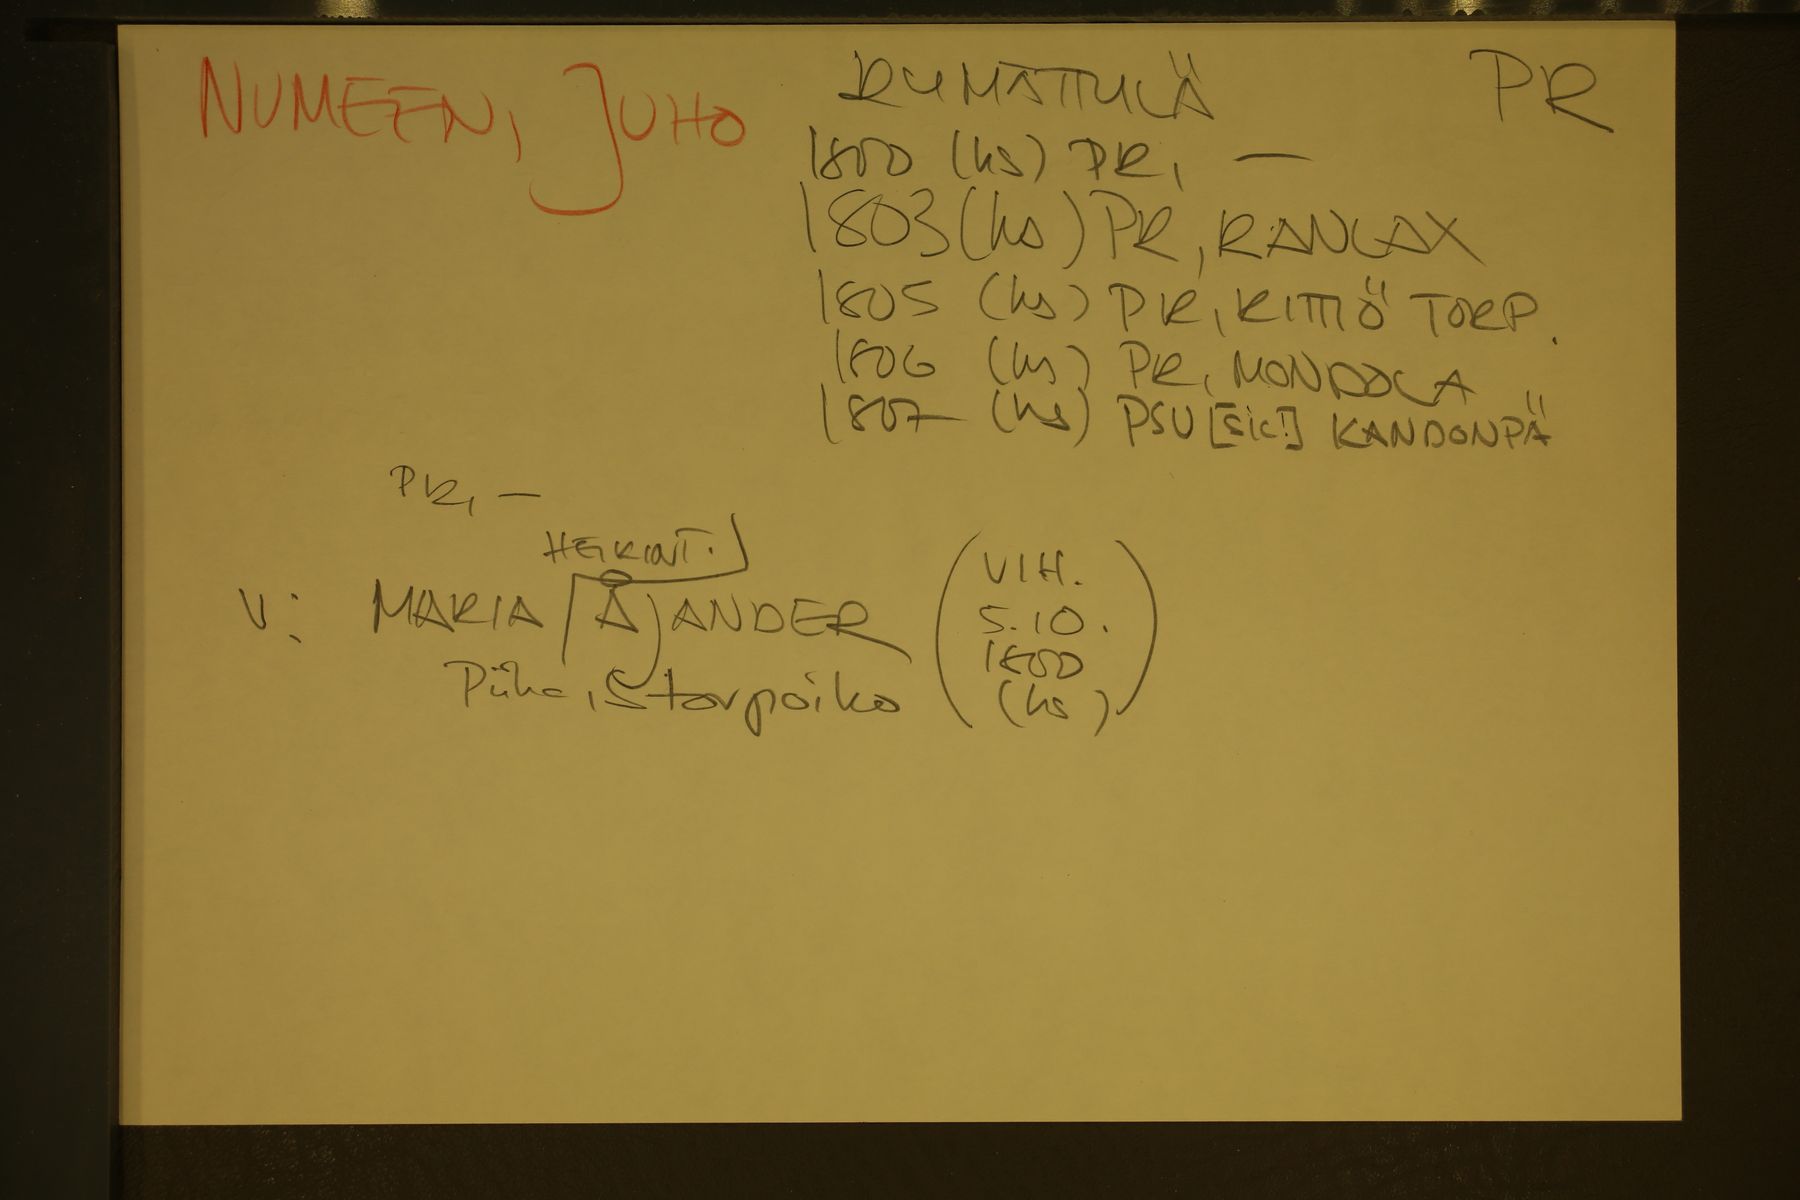 NUMEEN, JUHO
RYMÄTTYLÄ
PR
1800 (ks) PR, —
1803 (ks) PR, RANLAX
1805 (ks) PR, RITTIÖ TORP.
1806 (ks) PR, MONDOLA
1807 (ks) PSU [SIC!] KANDONPÄ
PR, —
HEIKINT.
V: MARIA Å ANDER
Piika, Storpoiko
(VIH.
5.10.
1800
(ks))